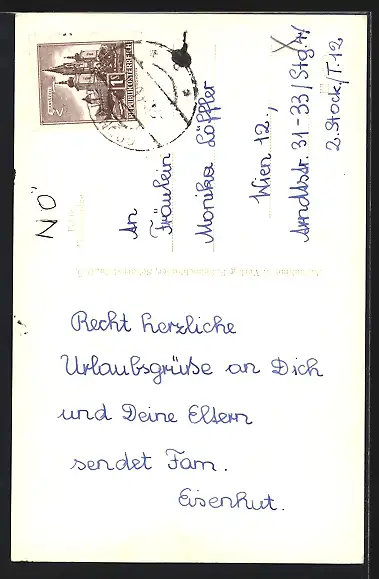 Recht herzliche
Urlaubsgrüße an Dich
und Deine Eltern
sendet Fam.
Eisenhut.
An
Fräulein
Monika Löffler
Wien 12.,
Arndtstr. 31-33/Stg.
2. Stock/T.12
NÖ
REPUBLIK ÖSTERREICH